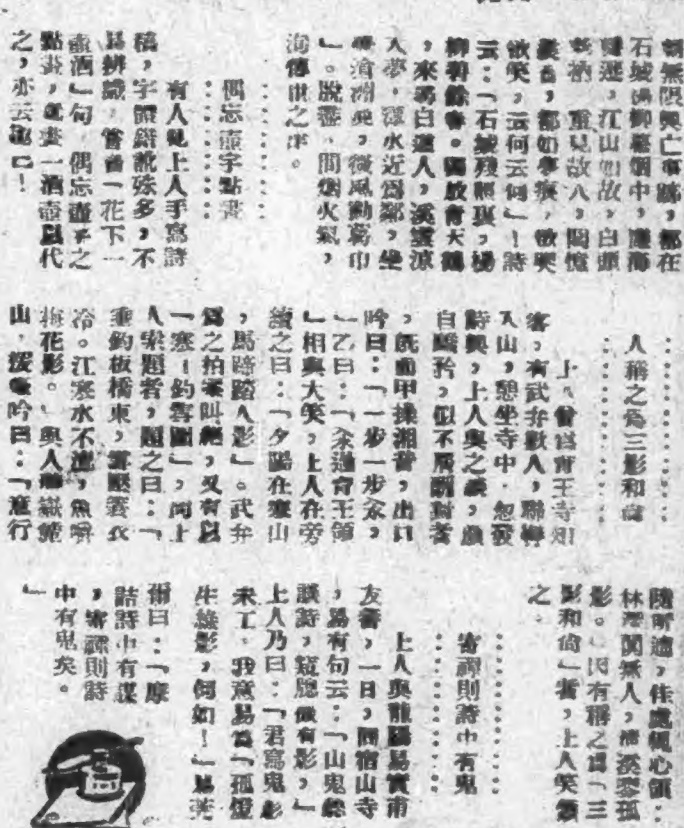 石城楊柳暮烟中
江山如故，白頭
重見故人，
都如夢痕，欲哭
欲笑，云何云何」！詩
云：「石城殘照裏，楊
柳碧餘春。
，來尋白道人，溪雲涼
入夢，水近為鄰，坐
滄洲，微風動葛巾
」。脫盡人間烟火氣，
洵傳世之作。
偶忘壺字點畫
有人見上人手寫詩
稿，字體錯訛殊多，不
易辨識，嘗有「花下一
壺酒」句，偶忘壺字之
點畫，並畫一酒壺以代
之，亦云趣已！
人稱之為三影和尚
上人曾為育王寺知
客，有武弁數人，聯轡
入山，憩坐寺中，忽發
詩興，上人與之談，頗
自驕矜，似不屑酬對者
，既而甲操湘音，出口
吟曰：「一步一步众，
」乙曰：「众過育王嶺
」相與大笑，上人在旁
續之曰：「夕陽在寒山
，馬蹄踏人影」。武弁
為之拍案叫絕，又有以
「寒江釣雪圖」，向上
人索題者，題之曰：「
垂釣板橋東，雪壓蓑衣
冷。江寒水不流，魚嚼
梅花影。」與人游嶽麓
山，援筆吟曰：「意行
隨所適，佳處輒心領，
林深闃無人，清溪鑒孤
影。」因有稱之為「三
影和尚」者，上人笑頷
之。
寄禪則詩中有鬼
上人與龍陽易實甫
友善，一日，同宿山寺
，易有句云：「山鬼聽
談詩，窺牕微有影，」
上人乃曰：「君寫鬼影
未工，我意易為「孤燈
生綠影，何如！」易笑
謝曰：「摩
詰詩中有禪
，寄禪則詩
中有鬼矣。
」